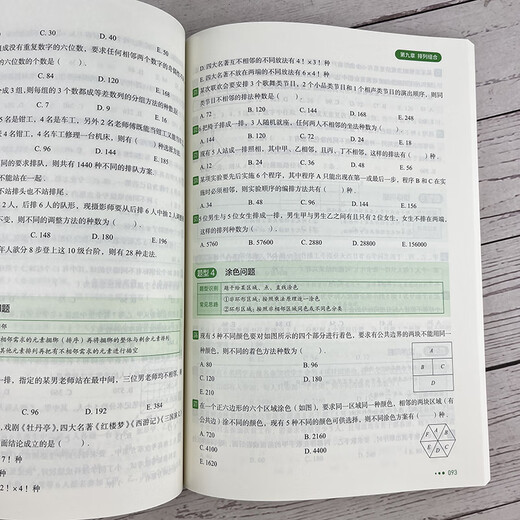 C. 30 D. 40 E. 50
组成没有重复数字的六位数，要求任何相邻两个数字的奇偶性不
的个数是（ ）.
C. 84 D. 120 E. 168
成3组，则每组的3个数都成等差数列的分组方法的种数是
C. 7 D. 8 E. 12
5名是钳工，4名是车工，另外2名老师傅既能当钳工又能当车
4名车工修理一台机床，则有（ ）种选派方
C. 120 D. 185
的要求排队，则共有1440种不同的排队方案.
不能站在一起.
不站排头也不站排尾.
2人，后排6人的队形，现摄影师要从后排6人中抽2人调
不变，则不同的调整方法的种数为（ ）.
C. 180 D. 480
年人欲分8步登上这10级台阶，则有28种走法.
问题
相邻需求的元素捆绑（排序）再将捆绑的整体与剩余元素排列
其他元素排列再把有不相邻需求的元素进行插空
一排，指定的某男老师站在最中间，三位男老师均不相邻，
C. 96 D. 192 E. 384
，戏剧《牡丹亭》，四大名著《红楼梦》《西游记》《三国演
面结论成立的是（ ）.
7！×4！种
2！×4！种
第九章 排列组合
D. 四大名著互不相邻的不同放法有4！×3！种
E. 四大名著不放在两端的不同放法有6×4！种
某次联欢会要安排3个歌舞类节目，2个小品类节目和1个相声类节目的演出顺序，则同
类节目不相邻的排法种数是（ ）.
A. 72 B. 120 C. 144 D. 168 E. 248
6把椅子排成一排，3人随机就座，任何两人不相邻的坐法种数为（ ）.
A. 144 B. 120 C. 72 D. 24 E. 180
现有5人站成一排照相，其中甲、乙相邻，且丙、丁不相邻，这样的排法有（ ）种.
A. 12 B. 24 C. 36 D. 48 E. 56
某项实验要先后实施6个程序，其中程序A只能出现在第一或最后一步，程序B和C在实
施时必须相邻，则实验顺序的编排方法共有（ ）种.
A. 34 B. 48 C. 96 D. 144 E. 168
5位男生与5位女生排成一排，男生甲与男生乙之间有且只有2位女生，女生不排在两端，
这样的排列种数为（ ）.
A. 5760 B. 57600 C. 2880 D. 28800 E. 156000
题型 4 涂色问题
题型识别 题干给某区域、点、直线涂色
常见思路 ①非环形区域：按照乘法原理逐一涂色
②环形区域：按照非相邻区域同色或不同色分类
现有5种不同颜色要对如图所示的四个部分进行着色，要求有公共边界的两块不能用同一
种颜色，则不同的着色方法种数为（ ）.
A. 80 B. 96
C. 120 D. 180
E. 210
A
B C
D
在一个正六边形的六个区域涂色（如图），要求同一区域同一种颜色，相邻的两块区域（有
公共边）涂不同的颜色，现有5种不同的颜色可供选择，则不同涂色方案有（ ）种.
A. 720 B. 2160
C. 4100 D. 4400
E. 1620
A
B
C
D
E
F
093